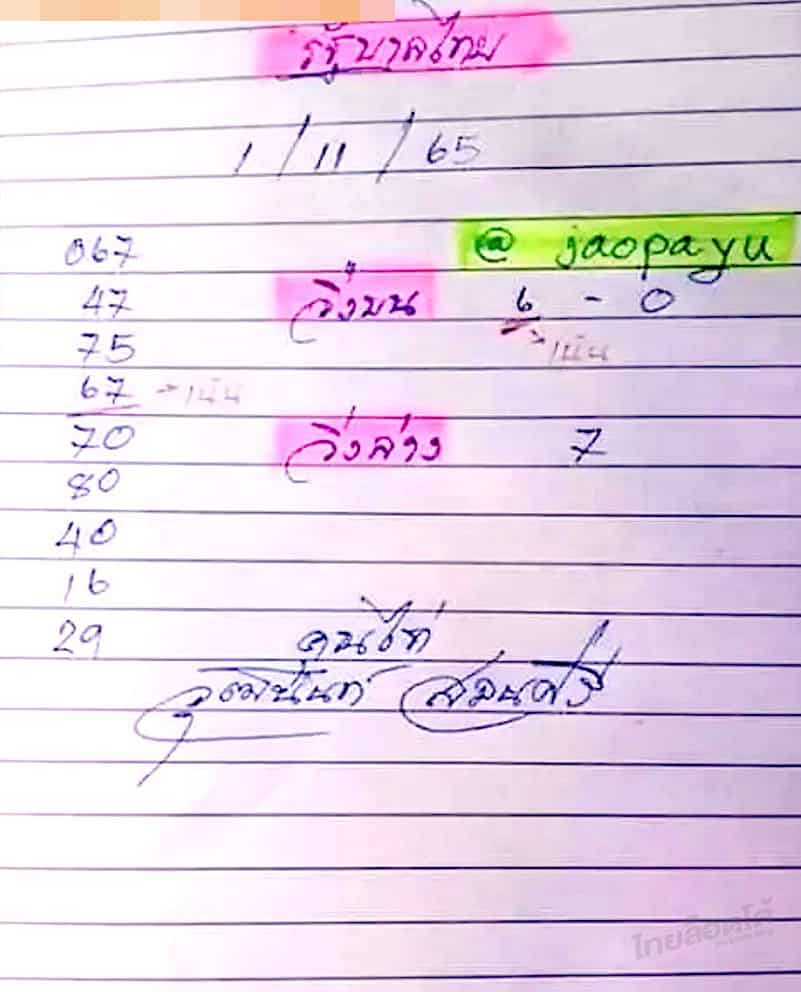 รัฐบาลไทย
1 / 11 / 65
@ jaopayu
067
47
วิ่งบน 6 - 0
→ เน้น
75
67 → เน้น
70
วิ่งล่าง 7
80
40
16
29
คุนไท่
วุฒินันท์ สมนศรี
ไทยล็อตโต้